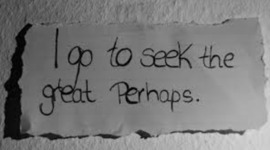 I go to seek the
great Perhaps.